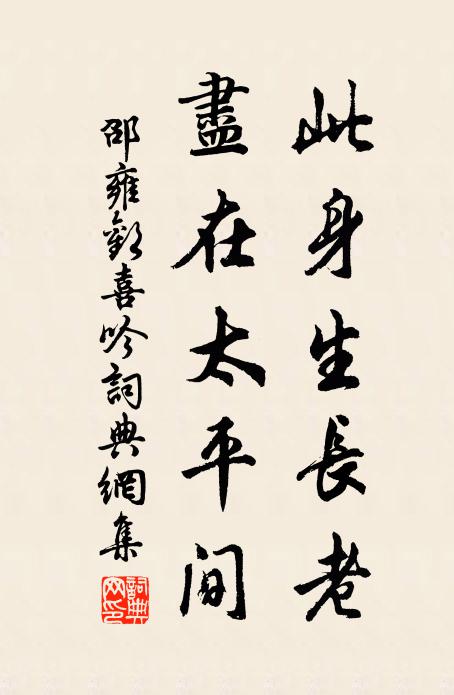 此身生長老
盡在太平間
邵雍歡喜吟詞典網集
詞典網印